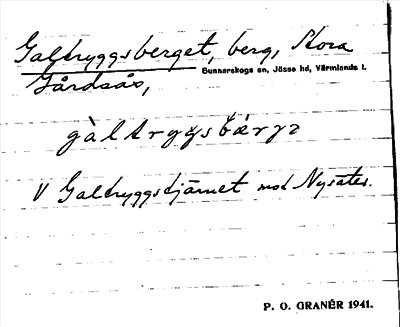 Galtryggsberget, berg, Stora
Gunnarskogs sn, Jösse hd, Värmlands l.
Gårdsås,
gàltryggsbærjə
V Galtryggstjärnet mod Nysäter.
P. O. GRANÉR 1941.